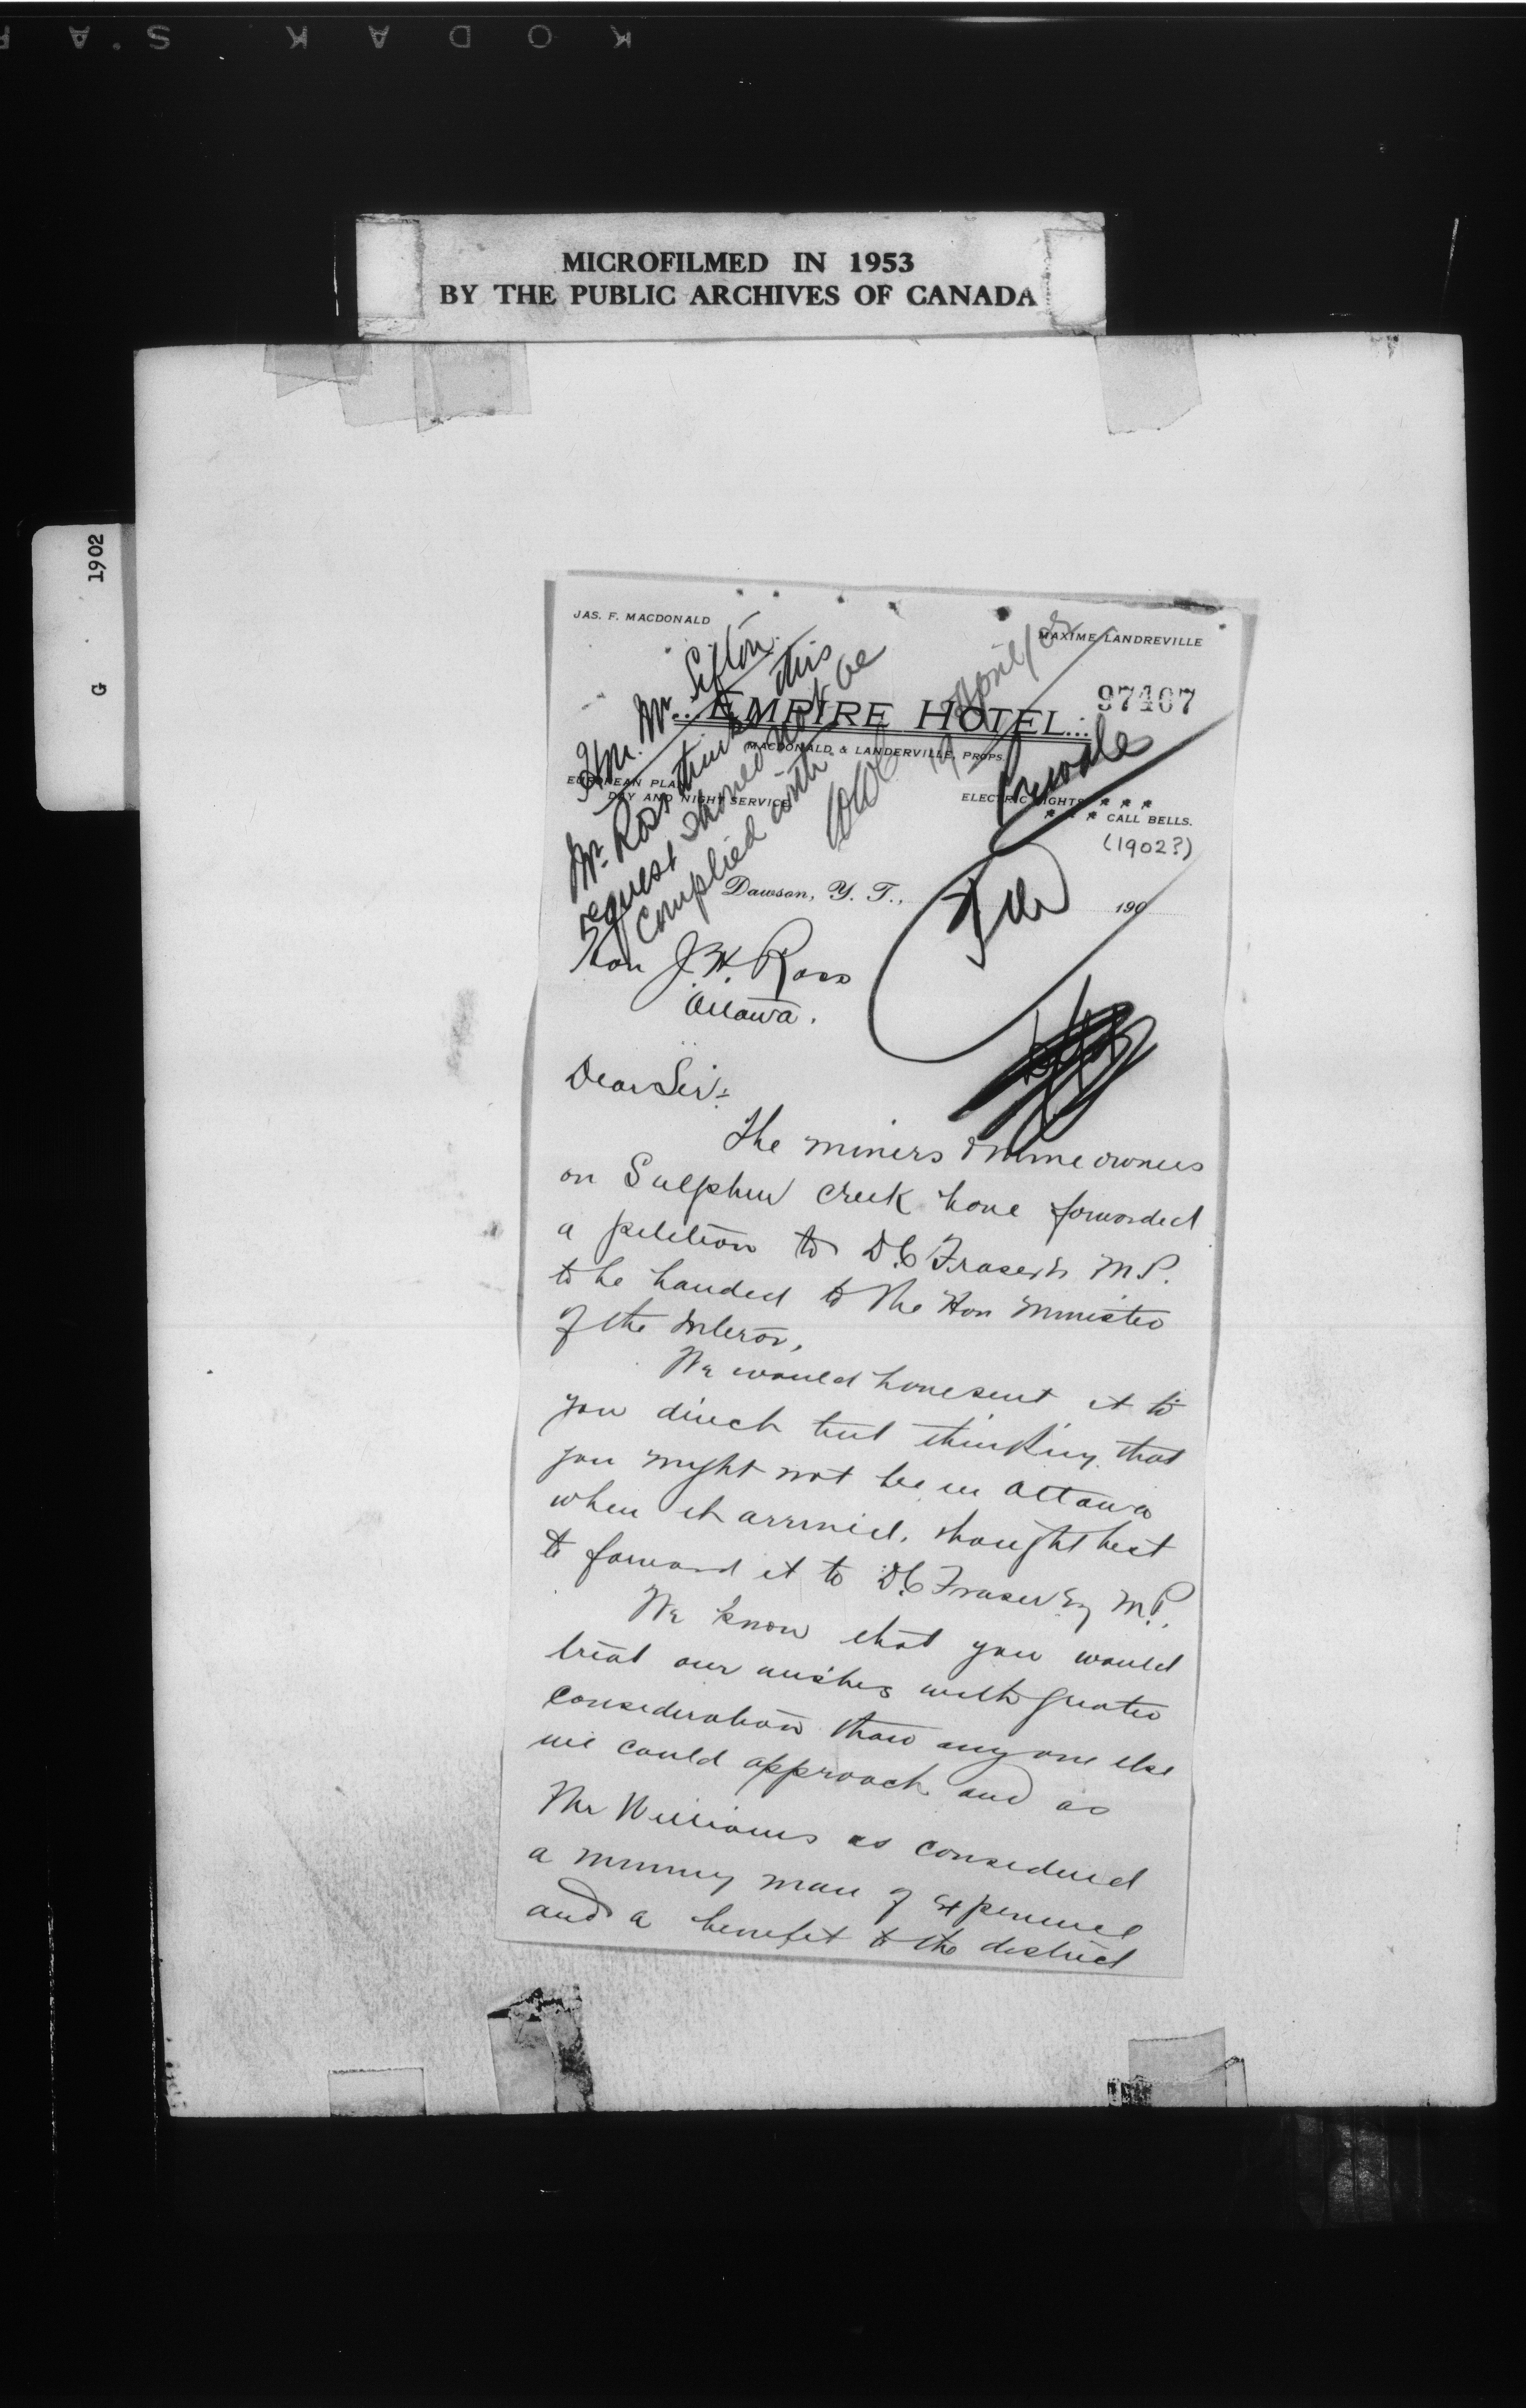 KODAK S.A
MICROFILMED IN 1953
BY THE PUBLIC ARCHIVES OF CANADA
G 1902
JAS. F. MACDONALD
MAXIME LANDREVILLE
97407
...EMPIRE HOTEL...
MACDONALD & LANDERVILLE, PROPS.
EUROPEAN PLAN
DAY AND NIGHT SERVICE
ELECTRIC LIGHTS * * *
* * * CALL BELLS.
(1902?)
Hon. Mr. Sifton
Mr. Ross thinks this
request should not be
complied with
19 April/02
Private
File
Dawson, Y. T., 190
Hon J. H. Ross
Ottawa.
Dear Sir:
The miners & mine owners
on Sulphur Creek have forwarded
a petition to D.C. Fraser M.P.
to be handed to the Hon Minister
of the Interior,
We would have sent it to
you direct but thinking that
you might not be in Ottawa
when it arrived, thought best
to forward it to D.C. Fraser Esq M.P.
We know that you would
treat our wishes with greater
consideration than any one else
we could approach and as
Mr Williams is considered
a mining man of experience
and a benefit to the district